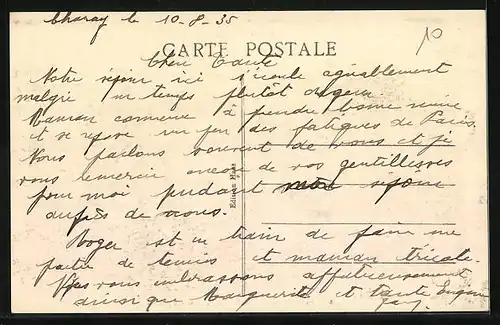 Charay le 10-8-35
10
CARTE POSTALE
Chère Tante
Notre séjour ici s'écoule agréablement
malgré un temps plutôt
Maman commence à prendre bonne mine
et se repose un peu des fatigues de Paris.
Nous parlons souvent de vous et je
vous remercie encore de vos gentillesses
pour moi pendant mon séjour
auprès de vous.
Roger est en train de faire une
partie de tennis et maman tricote.
vous embrassons affectueusement
ainsi que Marguerite et tante
Edition